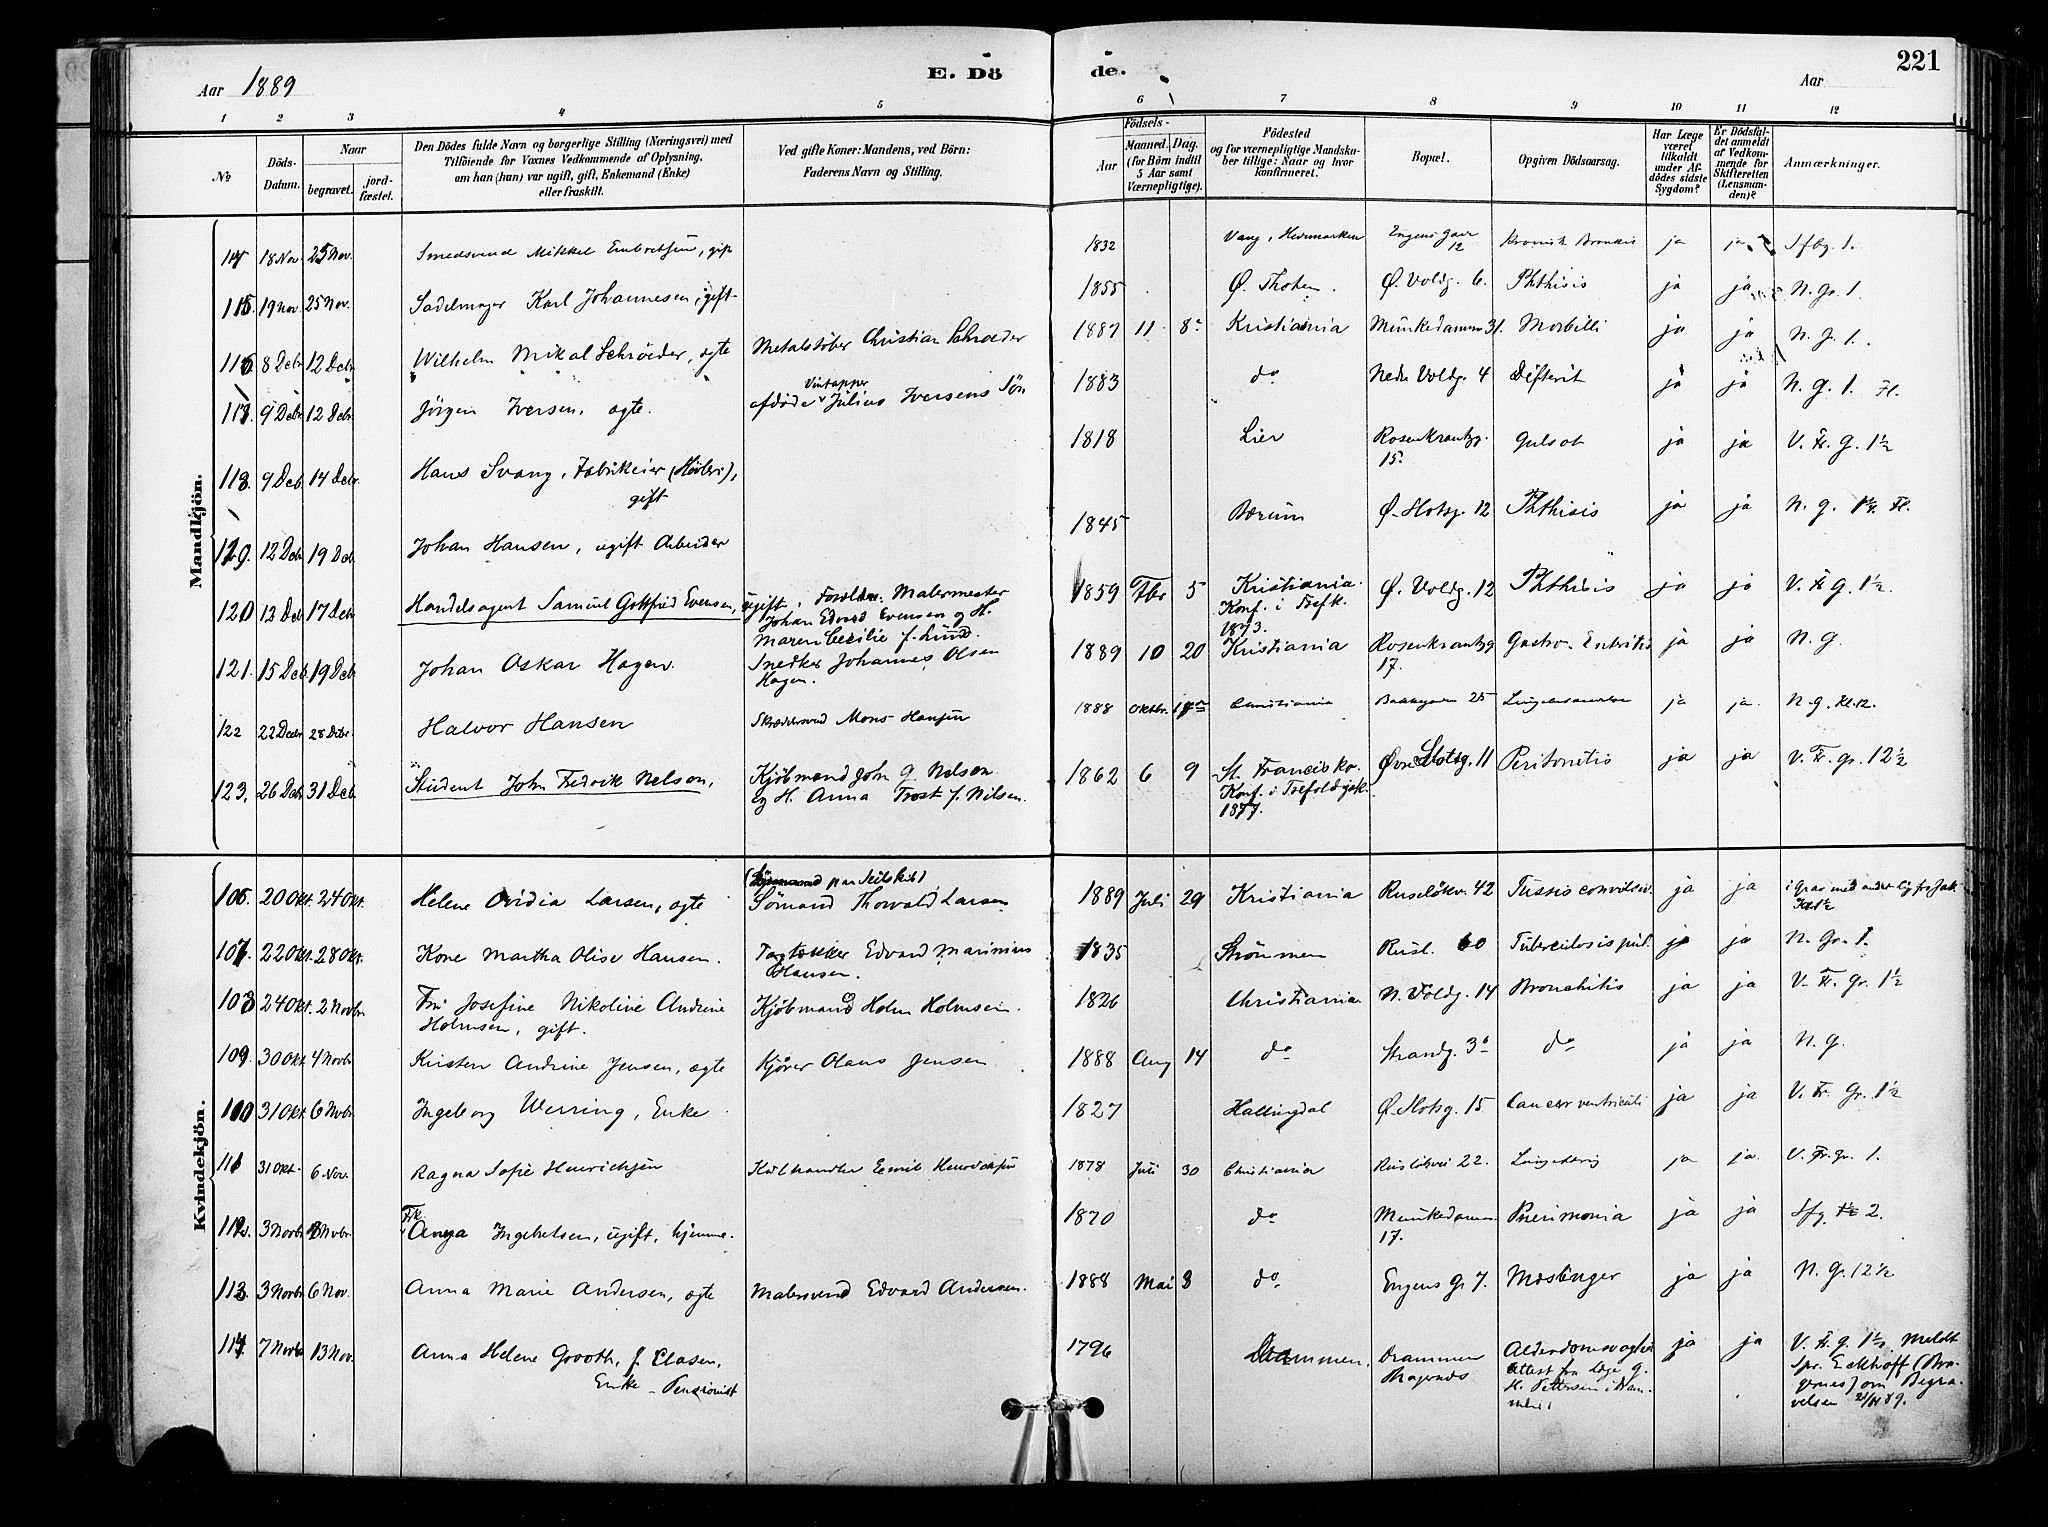 Aar 1889
E. Dö
de.
Aar
221
1 2 3 4 5 6 7 8 9 10 11 12
No
Döds-
Datum.
Naar
begravet.
jord-
fæstet.
Den Dödes fulde Navn og borgerlige Stilling (Næringsvei) med
Tilföiende for Voxnes Vedkommende af Oplysning,
om han (hun) var ugift, gift, Enkemand (Enke)
eller fraskilt.
Ved gifte Koner: Mandens, ved Börn:
Faderens Navn og Stilling.
Födsels-
Aar
Maaned. Dag.
(for Börn indtil
5 Aar samt
Værnepligtige).
Födested
og for værnepligtige Mandska-
ber tillige: Naar og hvor
konfirmeret.
Bopæl.
Opgiven Dödsaarsag.
Har Læge
været
tilkaldt
under Af-
dödes sidste
Sygdom?
Er Dödsfal-
det anmeldt
af Vedkom-
mende for
Skifteretten
(Lensman-
den)?
Anmærkninger.
Mandkjön.
114 18 Nov 25 Nov. Smedsvend Mikkel Embretsen, gift 1832 Vang, Hedemarken Engens Gade 12 Kronisk Bronkit ja ja Sfbg 1.
115. 19 Nov 25 Nov. Sadelmager Karl Johannesen, gift 1855 Ø. Thoten. Ø. Voldg. 6. Phthisis ja ja N. Gr. 1.
116 8 Debr 12 Debr Wilhelm Mikal Schrøeder, ægte Metalstøber Christian Schroeder 1887 11 8 Kristiania Munkedamsv 31. Morbilli ja ja N. g. 1.
117. 9 Debr 12 Debr Jörgen Iversen, ægte. afdöde Vintapper Julius Iversens Sön 1883 do Nedre Voldg. 4 Difterit ja ja N. g. 1. Fl.
118. 9 Deb 14 Debr. Hans Svang, Fabrikeier (Høvleri),
gift 1818 Lier Rosenkrantzg.
15. Gulsot ja ja V. Fr. G. 1½
119. 12 Deb 19 Deb. Johan Hansen, ugift Arbeider 1845 Bærum Ø. Slotsg. 12 Phthisis ja ja N. g. 1½. Fl.
120 13 Deb 17 Debr Handelsagent Samuel Gottfried Evensen, ugift. Forældre: Malermester
Johan Edvard Evensen og H.
Maren Cecilie f. Lund. 1859 Fbr 5 Kristiania.
Konf. i Trefk.
1873. Ø. Voldg. 12 Phthisis ja ja V. Fr g. 1½.
121. 15 Deb. 19 Debr Johan Oskar Hagen. Snedker Johannes Olsen
Hagen. 1889 10 20 Kristiania Rosenkrantzg
17. Gastro-Enteritis ja ja N. g.
122 22 Debr 28 Debr. Halvor Hansen Skræddersvend Mons Hansen 1888 Oktbr. Christiania Bakkegaden 25 ja ja. N. g. Kl. 12.
123. 26 Deb 31 Deb Student John Fredrik Nelson, Kjöbmand John G. Nelson
og H. Anna Trost f. Nilsen. 1862 6 9 St. Francisko.
Konf. i Trefoldigk.
1877. Øvre Slotsg. 11 Peritonitis ja ja V. Fr. gr. 12½
Kvindekjön.
106. 20 Okt. 24 Okt. Helene Ovidia Larsen, ægte (Sömand paa Seilskib)
Sömand Thorvald Larsen 1889 Juli 29 Kristiania Ruselökv. 42 Tussis convulsiv. ja ja i Grav med andet Lig fra Jak.
Kl 1½
107. 22 Okt. 28 Okt. Kone Martha Olise Hansen. Tagtækker Edvard Marinius
Hansen. 1835 Strömmen Rusl. 60 Tuberculosis pul. ja ja N. Gr. 1.
108 24 Okt. 2 Novbr Fru Josefine Nikoline Andrine
Holmsen, gift. Kjöbmand Holm Holmsen. 1826 Christiania N. Voldg. 14 Bronchitis ja ja V. Fr. Gr. 1½
109. 30 Okt 4 Novbr Kristen Andrine Jensen, ægte Kjörer Olaus Jensen 1888 Aug 14 do Strandg. 3 do ja ja N. g.
110 31 Okt 6 Novbr. Ingeborg Werring, Enke 1827 Hallingdal Ø. Slotsg. 15 Cancer ventriculi ja ja V. Fr. Gr. 1½
111 31 Okt. 6 Nov. Ragna Sofie Henrichsen Kulhandler Emil Henrichsen 1878 Juli 30 Christiania Ruselökvei 22. ja ja. V. Fr. Gr. 1.
112. 3 Novbr 8 Novbr. Frk.
Anna Ingebretsen, ugift, hjemme. 1870 do Munkedamsv.
17. Pneumonia ja ja Sfg 2.
113 3 Novbr 6 Nov. Anna Marie Andersen, ægte Malersvend Edvard Andersen. 1888 Mai 8 do Engens G. 7. Mæslinger ja ja N. G. 12½
114 7 Novbr 13 Nov. Anna Helene Grooth, f. Clasen,
Enke - Pensionist 1796 Drammen. Drammen
Bragernæs Alderdomssvaghed
Attest fra Læge G.
H. Pettersen i Dram-
men. ja ja V. Fr. g. 1½. Meldt
Spr. Eckhoff (Bra-
gernes) om Begra-
velsen 21/11 89.